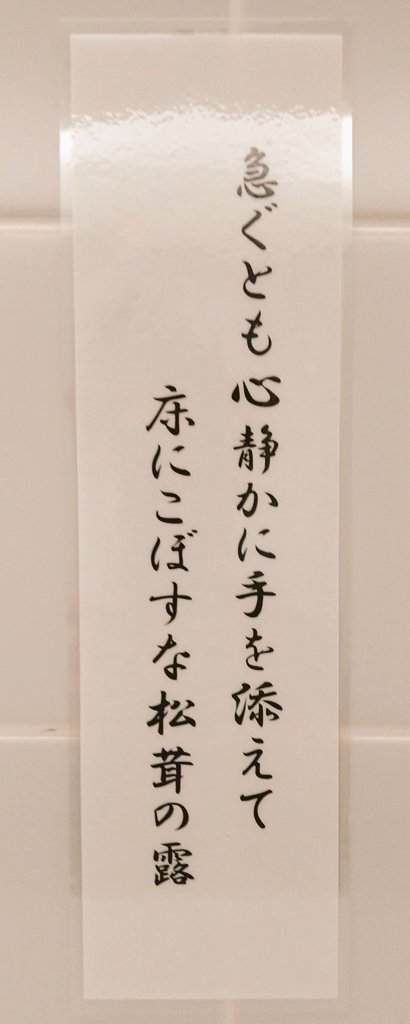 急ぐとも心静かに手を添えて
床にこぼすな松茸の露